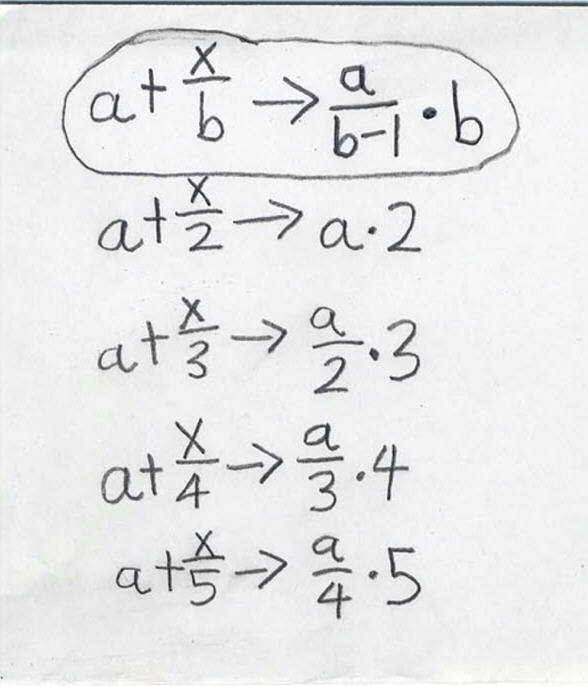 a + x/b → a/(b-1) · b
a + x/2 → a · 2
a + x/3 → a/2 · 3
a + x/4 → a/3 · 4
a + x/5 → a/4 · 5